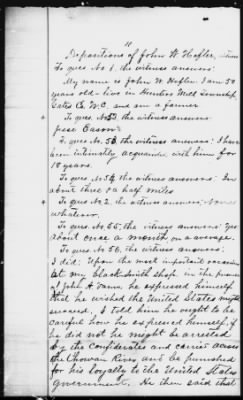 11
Depositions of John W. Hofler,
To ques. No 1, the witness answers:
My name is John W. Hofler. I am 50
years old – live in Hunters Mill Township
Gates Co. N.C. and am a farmer
To ques. No. 52 the witness answers
Jesse Eason
To ques. No. 53, the witness answers: I have
been intimately acquainted with him for
To ques. No 54, the witness answers:
about three & a half miles
To ques. No 2, the witness answers:
whatever.
To ques. No. 55, the witness answers: Yes
about once a month on a average.
To ques. No. 56, the witness answers:
I did: Upon the most important occasion
at my black smith shop in the presence
of John H. he expressed himself
that he wished the United States might
succeed. I told him he ought to be
careful how he expressed himself, if
he did not he might be arrested
by the Confederates and carried across
the Chowan River and be punished
for his loyalty to the United States
government. He then said that